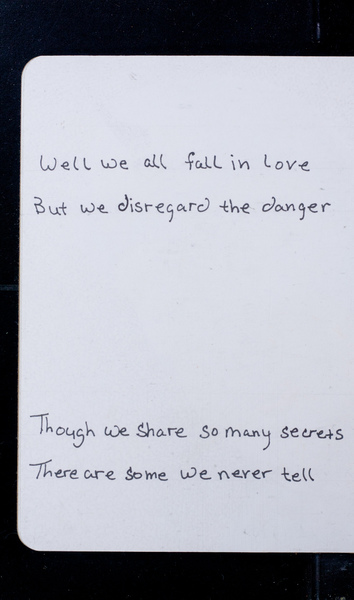 Well we all fall in love
But we disregard the danger
Though we share so many secrets
There are some we never tell